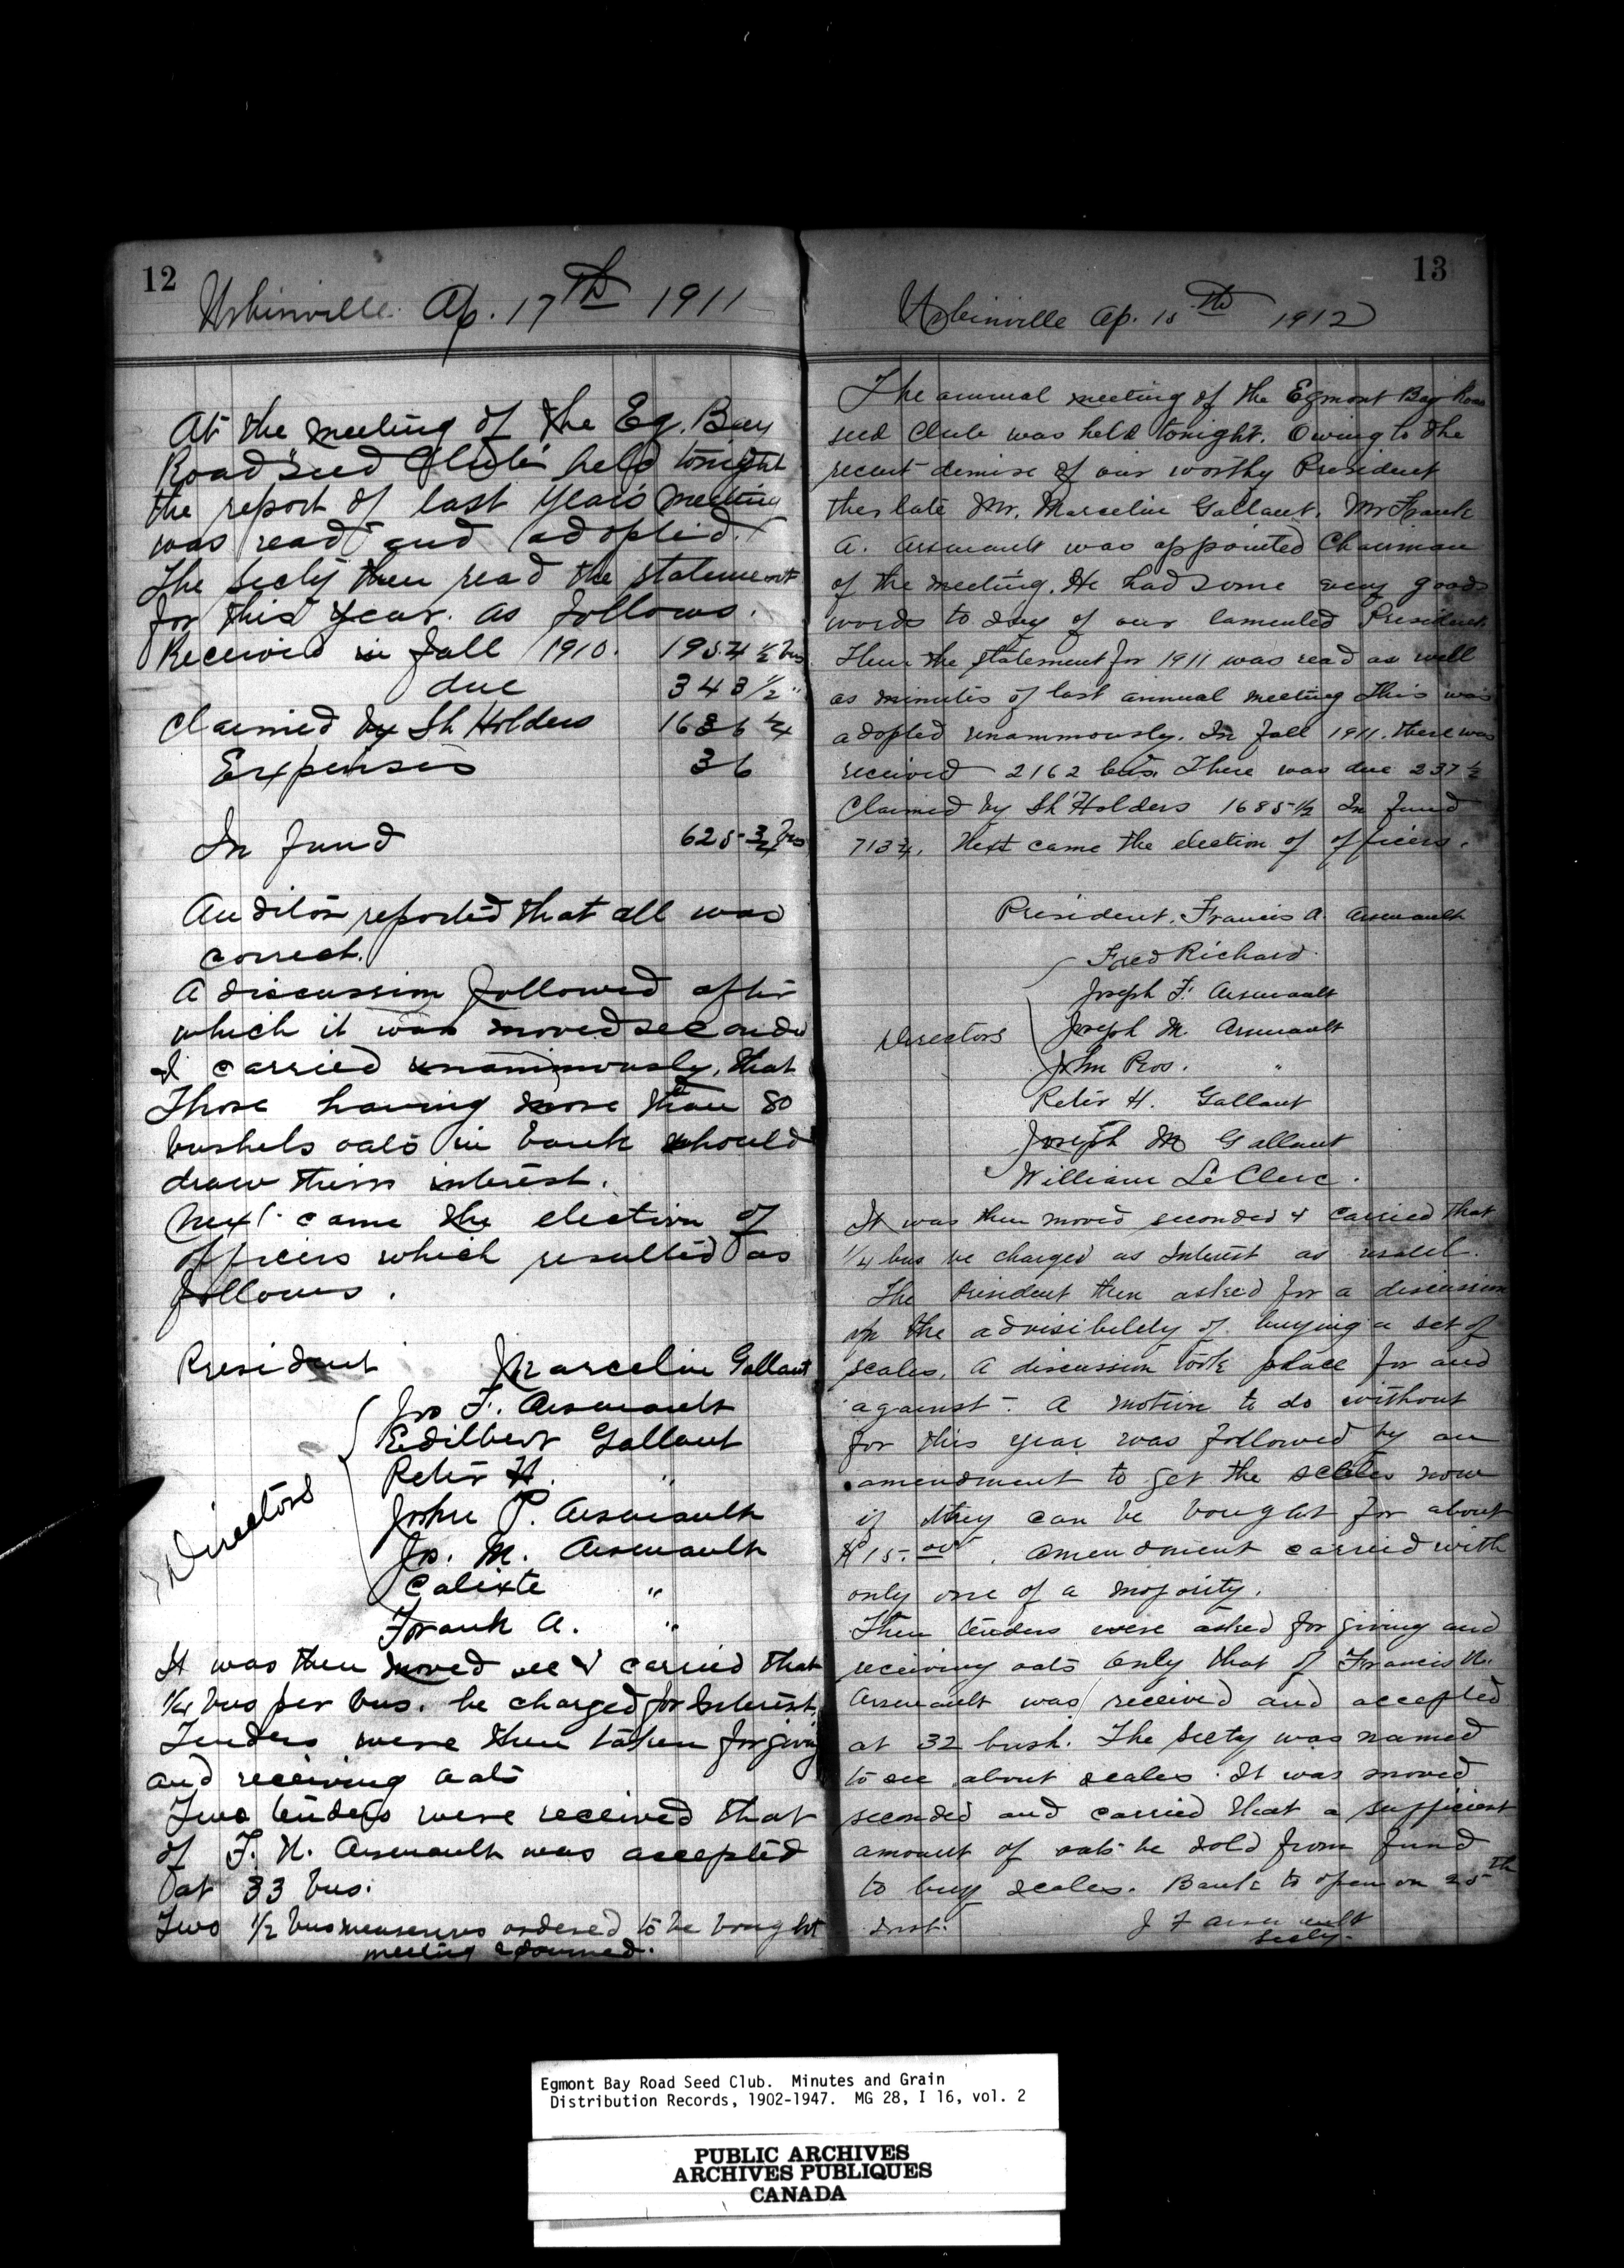 12
Urbinville Ap. 17th 1911
At the meeting of the Eg. Bay
Road "Seed Club" held tonight
the report of last year's meeting
was read and adopted.
The Secty then read the statement
for this year as follows.
Received in fall 1910. 1954 1/2 bus
due 343 1/2 "
Claimed by Sh Holders 1636 1/4
Expenses 36
In fund 625 3/4 bus
Auditors reported that all was
correct.
A discussion followed after
which it was moved seconded
& carried unanimously, that
Those having more than 80
bushels oats in bank should
draw their interest.
Next came the election of
officers which resulted as
follows.
President Marcelin Gallant
Directors
Jos F. Arsenault
Edilbert Gallant
Peter H. "
John P. Arsenault
Jos. M. Arsenault
Calixte "
Frank A. "
It was then moved sec & carried that
1/4 bus per bus. be charged for Interest.
Tenders were then taken for giving
and receiving oats
Two tenders were received that
of F. N. Arsenault was accepted
at 33 bus.
Two 1/2 bus measures ordered to be bought
meeting adjourned.
13
Urbinville Ap. 15th 1912
The annual meeting of the Egmont Bay Road
seed Club was held tonight. Owing to the
recent demise of our worthy President
the late Mr. Marcelin Gallant. Mr Frank
A. Arsenault was appointed Chairman
of the meeting. He had some very good
words to say of our lamented President.
Then the statement for 1911 was read as well
as minutes of last annual meeting This was
adopted unammously. In fall 1911. there was
received 2162 bus. There was due 237 1/2
Claimed by Sh'Holders 1685 1/2 In fund
713 3/4. Next came the election of officers.
President. Francis A. Arsenault
Directors
Fred Richard.
Joseph F. Arsenault
Joseph M. Arsenault
John Pros. "
Peter H. Gallant
Joseph M Gallant
William Le Clerc.
It was then moved seconded & carried that
1/4 bus be charged as Interest as usual.
The President then asked for a discussion
on the advisibility of buying a set of
scales. A discussion took place for and
against. A motion to do without
for this year was followed by an
amendment to get the scales now
if they can be bought for about
$15.00. Amendment carried with
only one of a majority.
Then tenders were asked for giving and
receiving oats only that of Francis N.
Arsenault was received and accepted
at 32 bush. The Secty was named
to see about scales. It was moved
seconded and carried that a sufficient
amount of oats be sold from fund
to buy scales. Bank to open on 25th
inst. J F Arsenault
Secty.
Egmont Bay Road Seed Club. Minutes and Grain
Distribution Records, 1902-1947. MG 28, I 16, vol. 2
PUBLIC ARCHIVES
ARCHIVES PUBLIQUES
CANADA